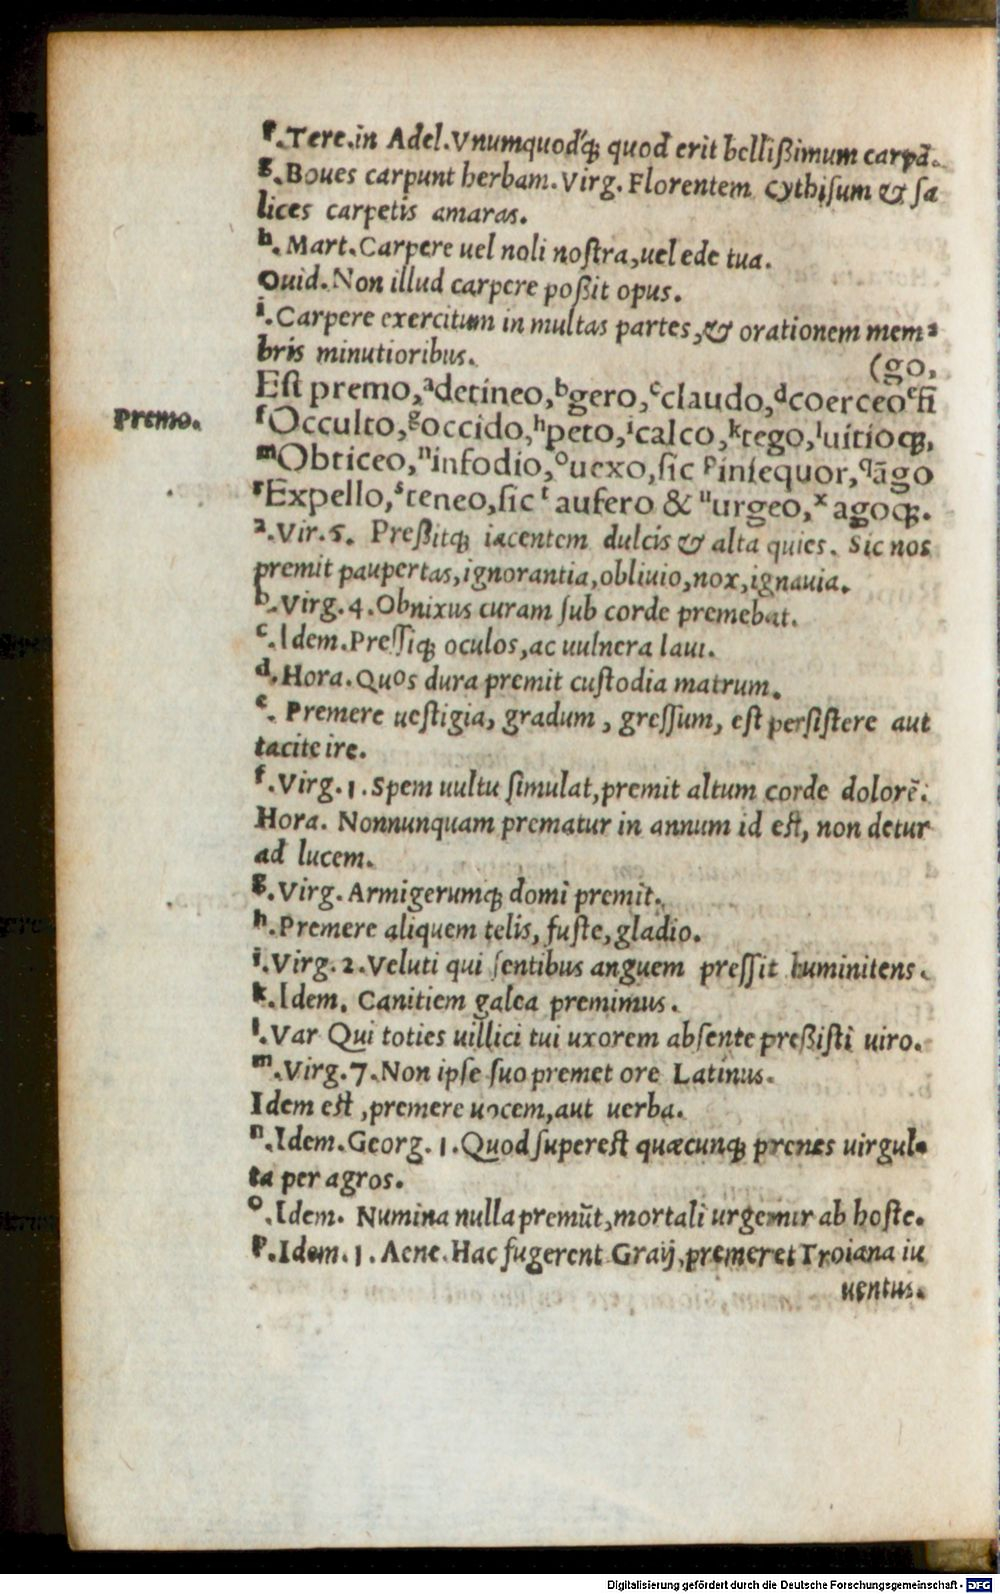 f.Tere.in Adel.Vnumquodq́; quod erit bellißimum carpā.
g.Boues carpunt herbam.Virg. Florentem Cythiſum & ſa
lices carpetis amaras.
h. Mart.Carpere uel noli noſtra,uel ede tua.
Ouid.Non illud carpere poßit opus.
i.Carpere exercitum in multas partes,& orationem mem-
bris minutioribus.
(go,
Eſt premo,ᵃdetineo,ᵇgero,ᶜclaudo,ᵈcoerceoᵉfi
Premo.
ᶠOcculto,ᵍoccido,ʰpeto,ⁱcalco,ᵏtego,ˡuitioq;,
ᵐObticeo,ⁿinfodio,ᵒuexo,ſic ᵖinſequor,ᑫāgo
ʳExpello,ˢteneo,ſic ᵗ aufero & ᵘurgeo,ˣ agoq;.
a.Vir.5. Preßitq; iacentem dulcis & alta quies. Sic nos
premit paupertas,ignorantia,obliuio,nox,ignauia.
b.Virg.4.Obnixus curam ſub corde premebat.
c.Idem.Preſſiq; oculos,ac uulnera laui.
d.Hora.Quos dura premit cuſtodia matrum.
e. Premere ueſtigia, gradum , greſſum, eſt perſiſtere aut
tacite ire.
f.Virg.1.Spem uultu ſimulat,premit altum corde dolorē.
Hora. Nonnunquam prematur in annum id eſt, non detur
ad lucem.
g.Virg. Armigerumq; domi premit.
h.Premere aliquem telis, fuſte,gladio.
i.Virg.2.Veluti qui ſentibus anguem preſſit huminitens.
k.Idem. Canitiem galea premimus.
l.Var Qui toties uillici tui uxorem abſente preßiſti uiro.
m.Virg.7.Non ipſe ſuo premet ore Latinus.
Idem eſt ,premere uocem,aut uerba.
n.Idem.Georg. 1.Quod ſupereſt quæcunq; premes uirgul-
ta per agros.
o.Idem. Numina nulla premūt,mortali urgemur ab hoſte.
p.Idem.1. Aene.Hac fugerent Graij,premeret Troiana iu
uentus.
Digitalisierung gefördert durch die Deutsche Forschungsgemeinschaft - DFG